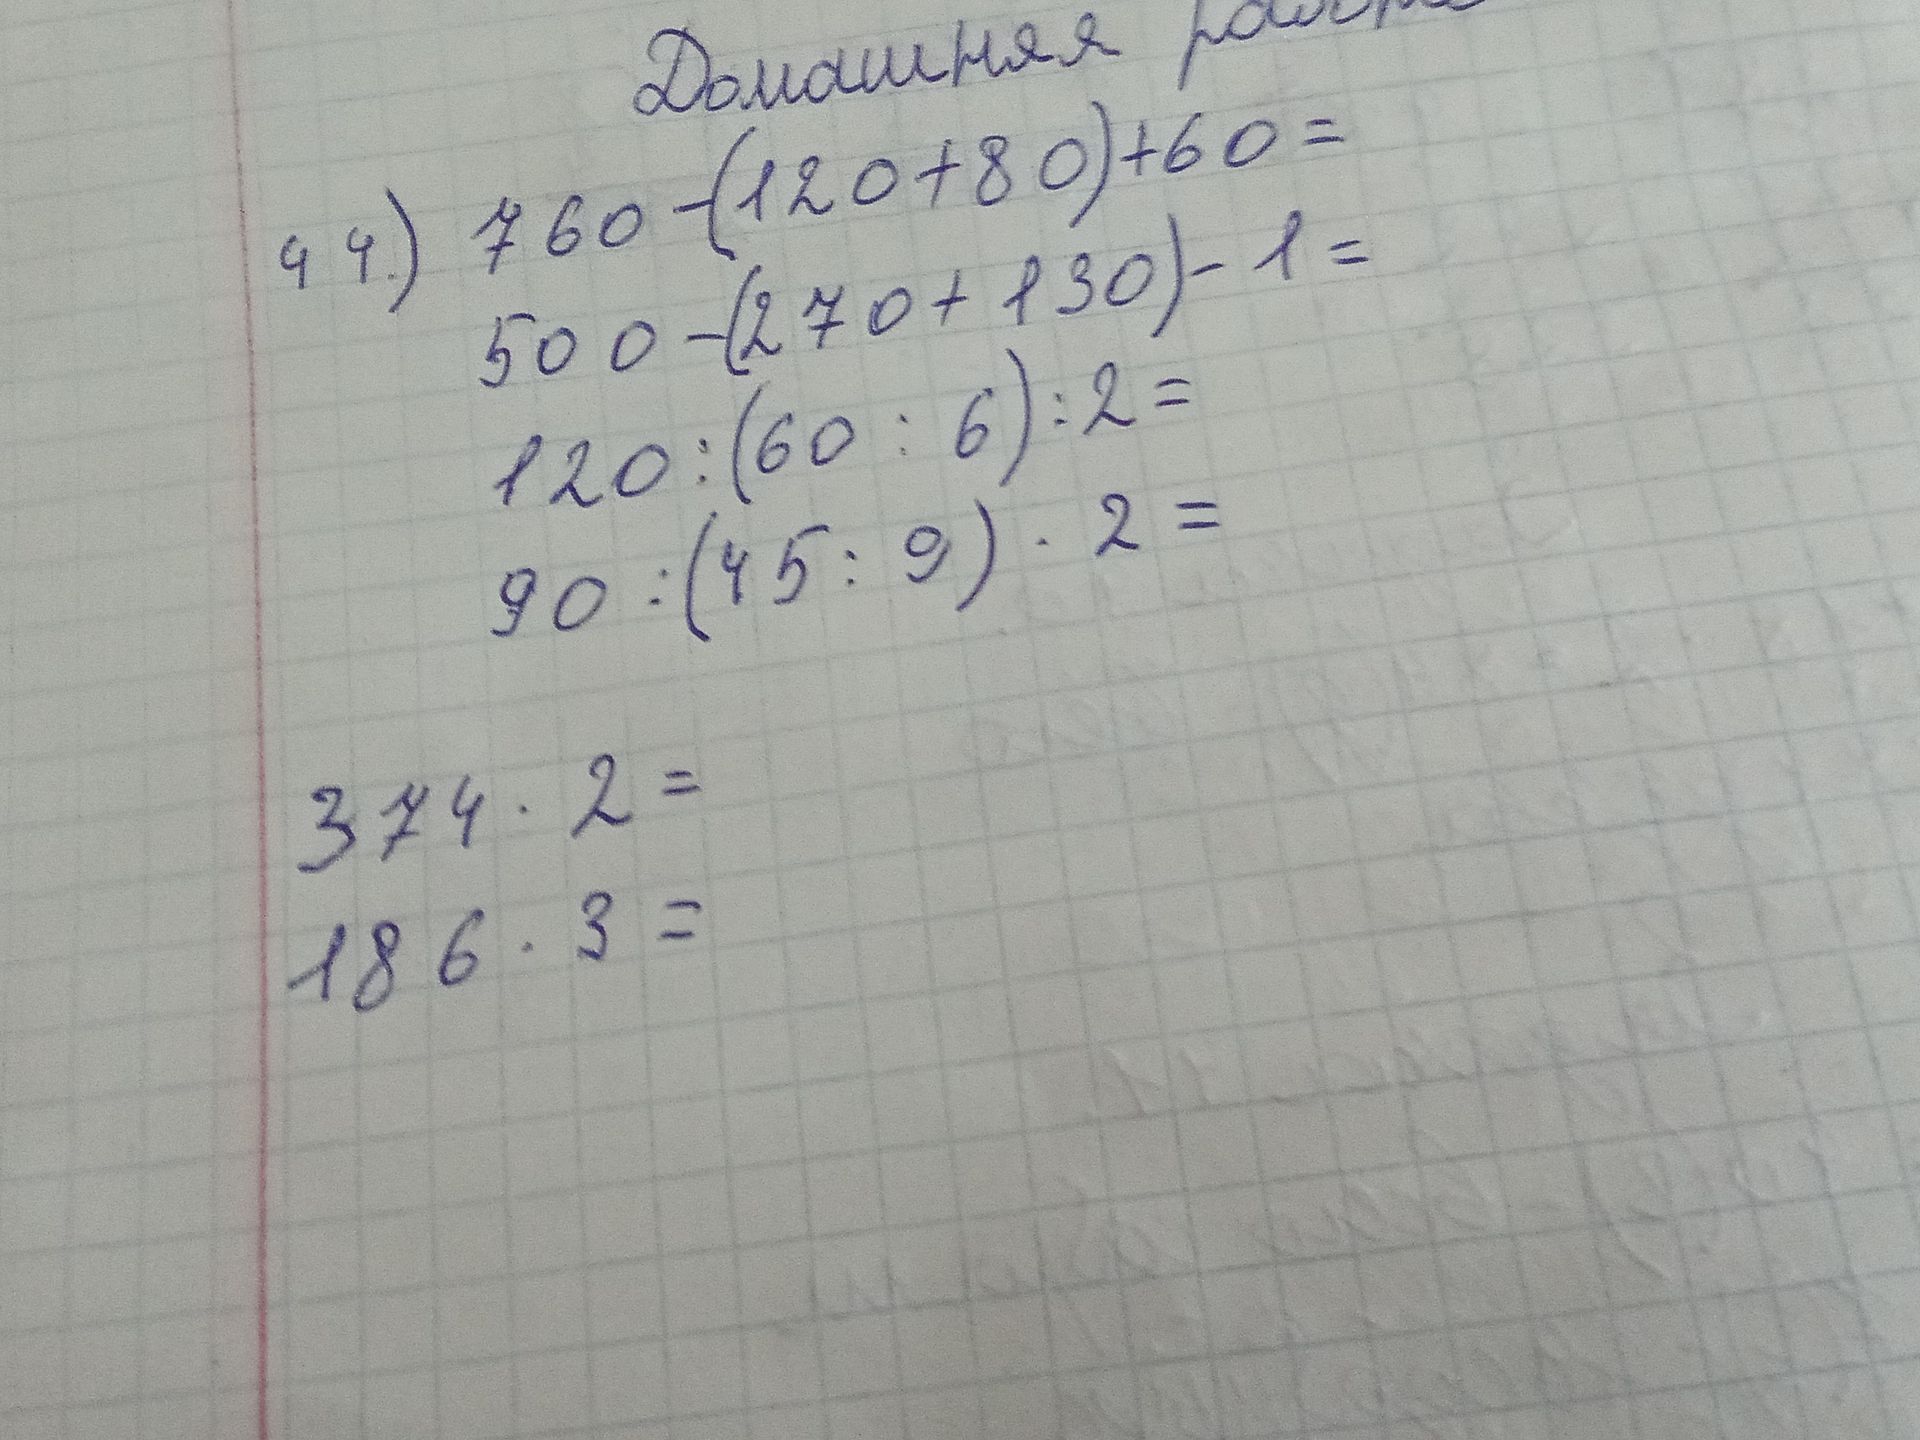 Домашняя работа
44.) 760-(120+80)+60=
500-(270+130)-1=
120:(60:6):2=
90:(45:9)·2=
374·2=
186·3=